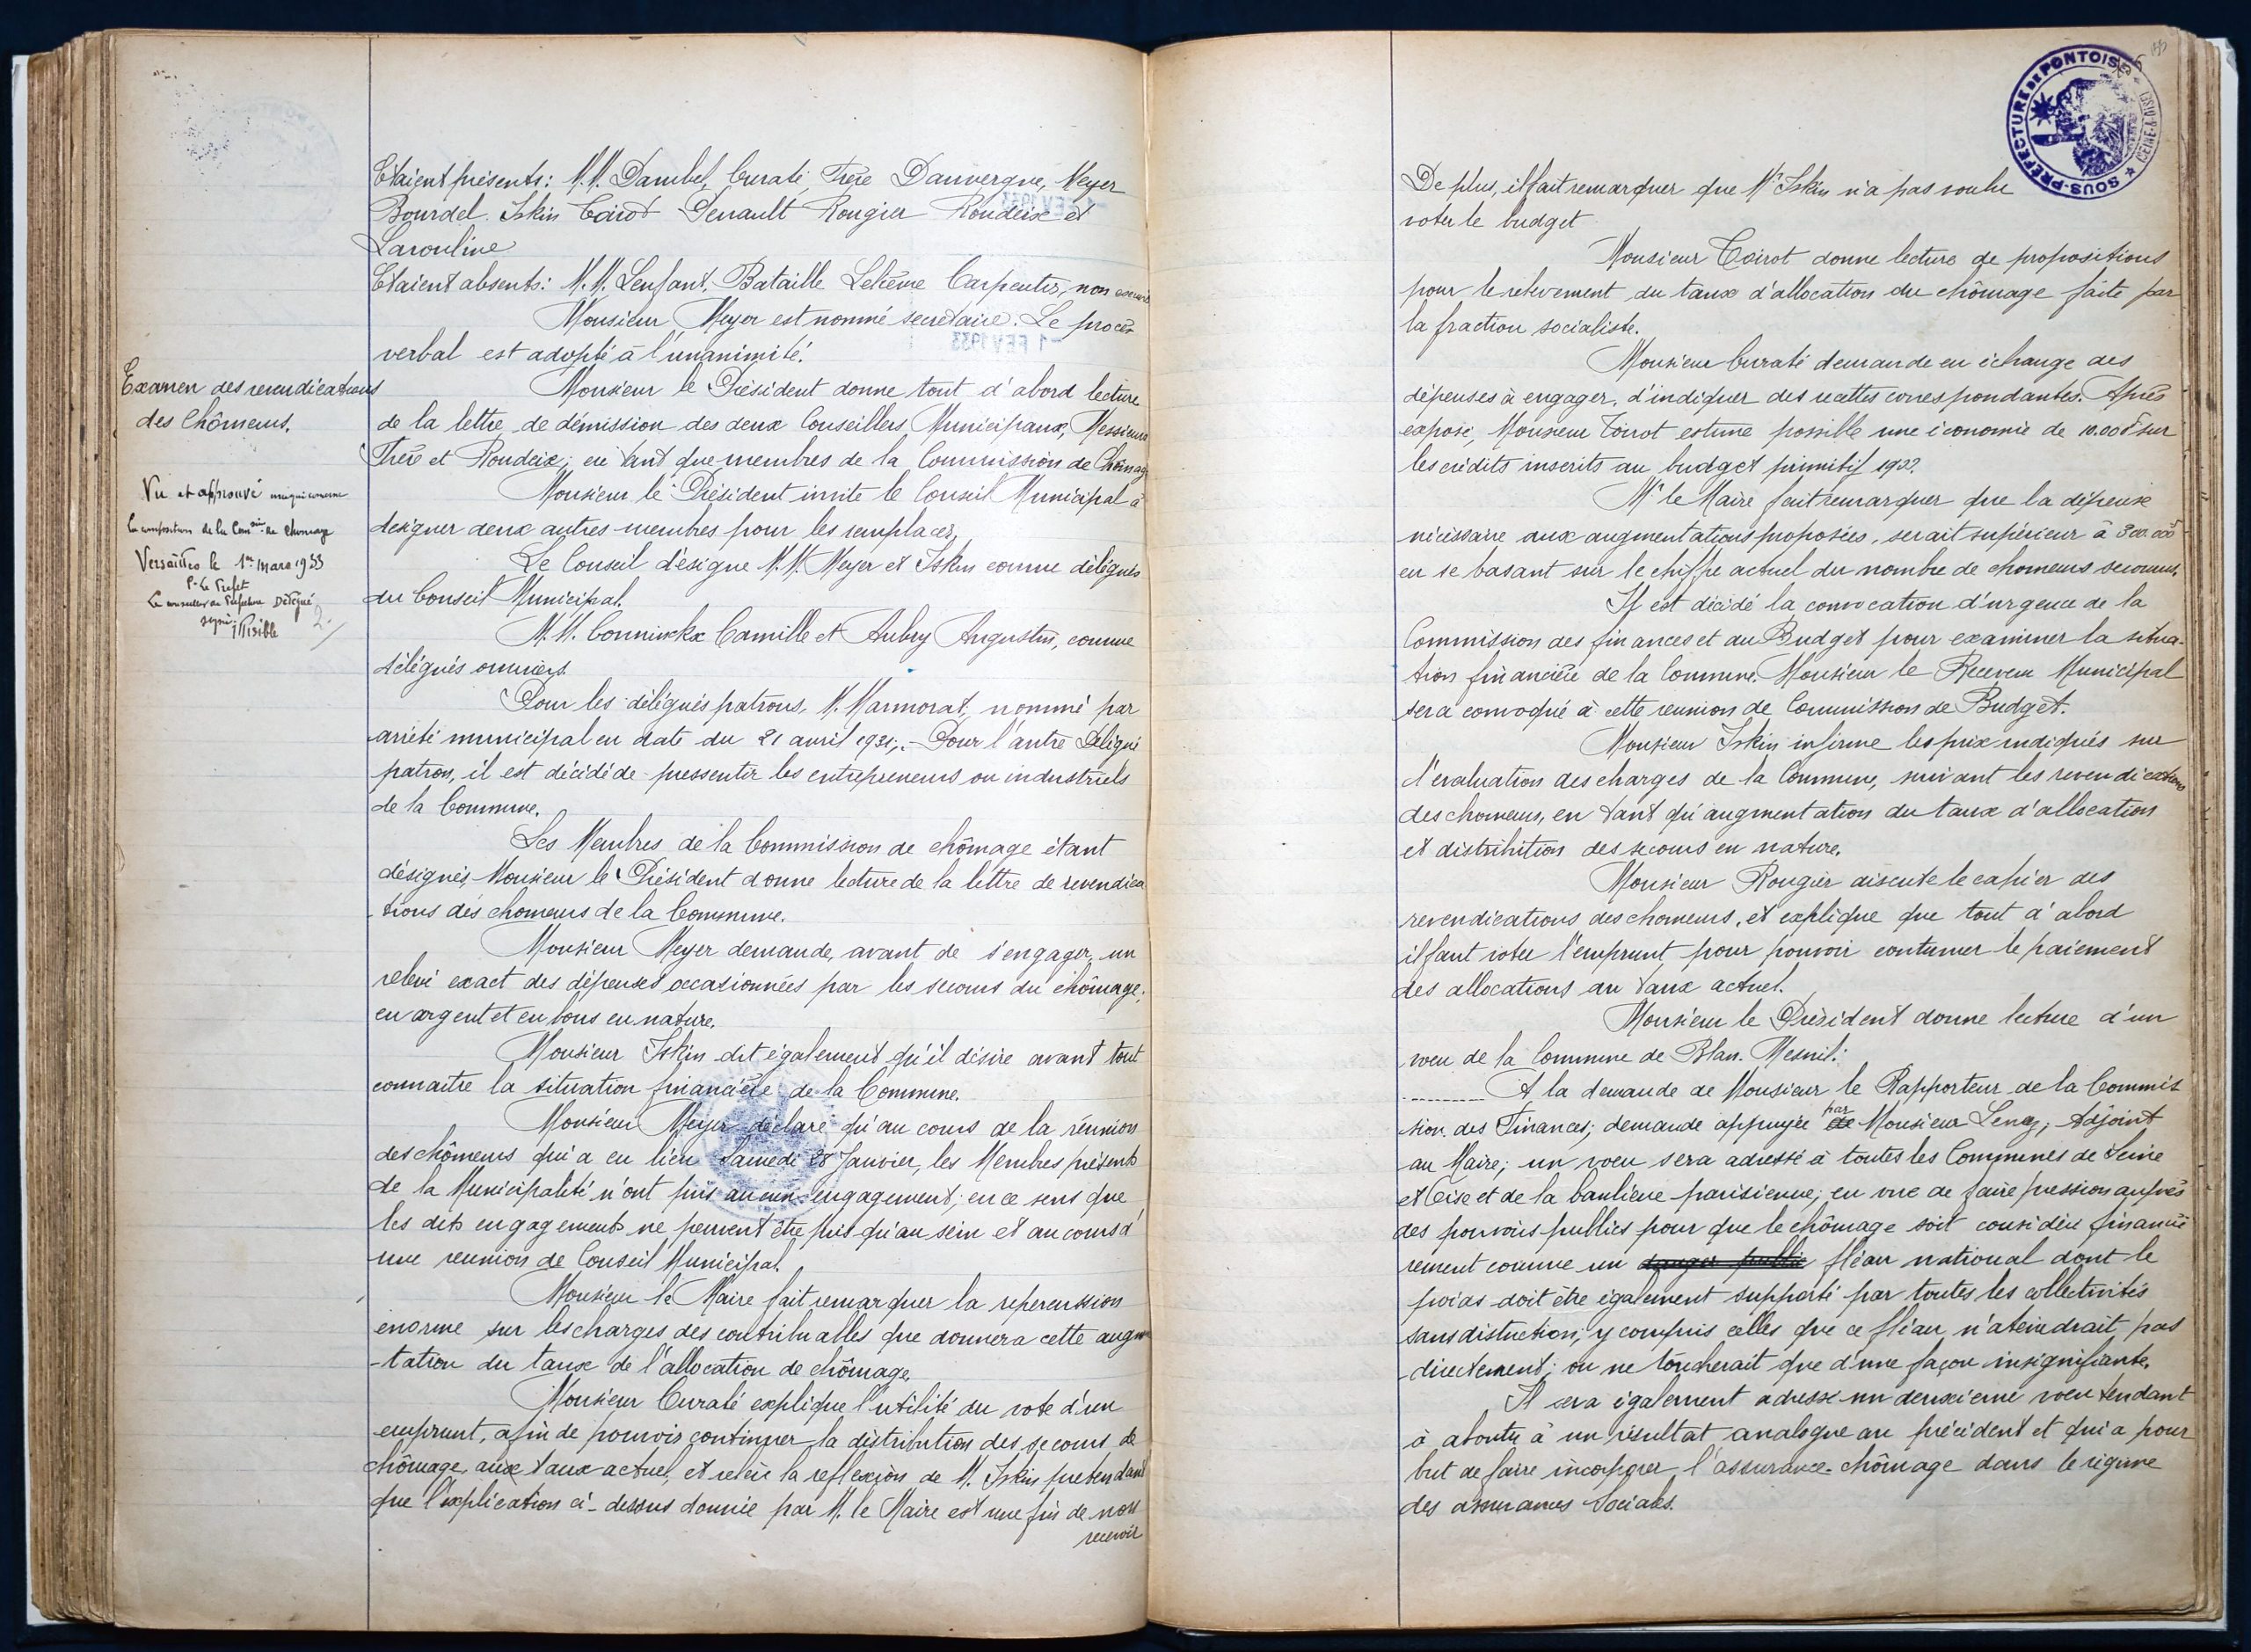 Etaient présents: M.M. Dambel, Curaté, Frère Dauvergne, Meyer
Bourdel. Iskin Coirot Renault Rougier Roudeix et
Larouline
Etaient absents: M.M. Lenfant, Bataille Lehême Carpentier, non
Monsieur Meyer est nommé secrétaire. Le procès
verbal est adopté à l'unanimité.
Examen des revendications
des Chômeurs.
Monsieur le Président donne tout d'abord lecture
de la lettre de démission des deux Conseillers Municipaux, Messieurs
Frère et Roudeix, en tant que membres de la Commission de Chômage
Monsieur le Président invite le Conseil Municipal à
désigner deux autres membres pour les remplacer,
Vu et approuvé uniquement
la composition de la Comson de chomage
Versailles le 1er mars 1933
P. le Préfet
Le conseiller de Préfecture Délégué
signé: Illisible
Le Conseil désigne M.M. Meyer et Iskin comme délégués
du Conseil Municipal.
M.M. Conninckx Camille et Aubry Augustin, comme
délégués ouvriers.
Pour les délégués patrons, M. Marmorat, nommé par
arrêté municipal en date du 21 avril 1931;.- Pour l'autre Délégué
patron, il est décidé de pressentir les entrepreneurs ou industriels
de la Commune.
Les Membres de la Commission de chômage étant
désignés, Monsieur le Président donne lecture de la lettre de revendica
-tions des chomeurs de la Commune.
Monsieur Meyer demande, avant de s'engager, un
relevé exact des dépenses occasionnées par les secours du chômage,
en argent et en bons en nature.
Monsieur Iskin dit également qu'il désire avant tout
connaitre la situation financière de la Commune.
Monsieur Meyer déclare qu'au cours de la réunion
des chômeurs qui a eu lieu Samedi 28 Janvier, les Membres présents
de la Municipalité n'ont pris aucun engagement; en ce sens que
les dits engagements ne peuvent être pris qu'au sein et au cours d'
une reunion de Conseil Municipal.
Monsieur le Maire fait remarquer la repercussion
énorme sur les charges des contribuables que donnera cette augmen
-tation du taux de l'allocation de chômage.
Monsieur Curaté explique l'utilité du vote d'un
emprunt, afin de pouvoir continuer la distribution des secours de
chômage, aux taux actuel, et relève la reflexion de M. Iskin pretendant
que l'explication ci-dessus donnée par M. le Maire est une fin de non
recevoir
SOUS-PRÉFECTURE DE PONTOISE
(SEINE-&-OISE)
De plus, il fait remarquer que Mr Iskin n'a pas voulu
voter le budget
Monsieur Coirot donne lecture de propositions
pour le relèvement du taux d'allocation du chômage faite par
la fraction socialiste.
Monsieur Curaté demande en échange des
dépenses à engager, d'indiquer des recettes correspondantes. Après
exposé, Monsieur Coirot estime possible une économie de 10.000f sur
les crédits inscrits au budget primitif 1933.
Mr le Maire fait remarquer que la dépense
nécessaire aux augmentations proposées, serait supérieur à 300.000f
en se basant sur le chiffre actuel du nombre de chomeurs secourus.
Il est décidé la convocation d'urgence de la
Commission des finances et du Budget pour examiner la situa-
tion financière de la Commune. Monsieur le Receveur Municipal
sera convoqué à cette reunion de Commission de Budget.
Monsieur Iskin infirme les prix indiqués sur
l'evaluation des charges de la Commune, suivant les revendications
des chomeurs, en tant qu'augmentation du taux d'allocation
et distribution des secours en nature.
Monsieur Rougier discute le cahier des
revendications des chomeurs, et explique que tout d'abord
il faut voter l'emprunt pour pouvoir continuer le paiement
des allocations au taux actuel.
Monsieur le Président donne lecture d'un
voeu de la Commune de Blanc Mesnil:
A la demande de Monsieur le Rapporteur de la Commis
sion des Finances; demande appuyée de par Monsieur Lency, Adjoint
au Maire; un voeu sera adressé à toutes les Communes de Seine
et Oise et de la banlieue parisienne; en vue de faire pression auprès
des pouvoirs publics pour que le chômage soit considéré financiè
rement comme un danger public fléau national dont le
poids doit être également supporté par toutes les collectivités
sans distinction; y compris celles que ce fléau n'ateindrait pas
directement; ou ne toucherait que d'une façon insignifiante.
Il sera également adressé un deuxième voeu tendant
à aboutir à un résultat analogue au précédent et qui a pour
but de faire incorporer l'assurance-chômage dans le régime
des assurances Sociales.